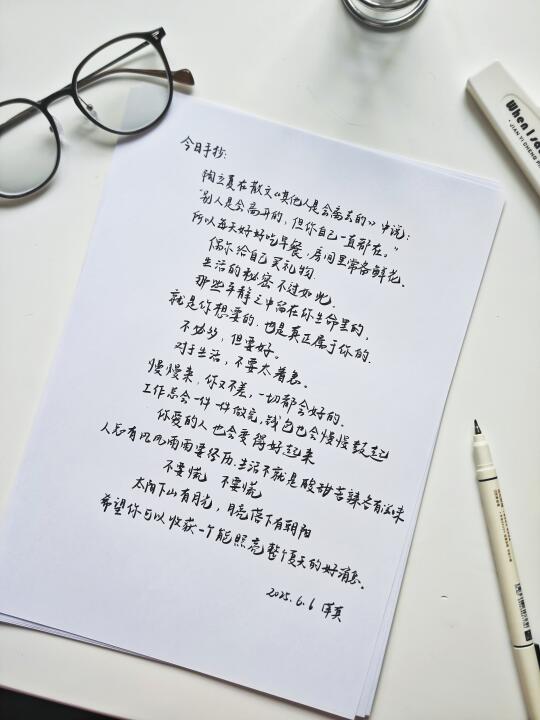 今日手抄:
陶立夏在散文《其他人是会离去的》中说:
"别人是会离开的,但你自己一直都在。"
所以每天好好吃早餐,房间里常备鲜花.
偶尔给自己买礼物
生活的秘密不过如此.
那些平静之中留在你生命里的,
就是你想要的.也是真正属于你的.
不必多,但要好。
对于生活,不要太着急。
慢慢来,你又不差,一切都会好的.
工作总会一件一件做完,钱包也会慢慢鼓起
你爱的人也会变得好起来
人总有风风雨雨要经历.生活不就是酸甜苦辣各有滋味
不要慌 不要慌
太阳下山有月光,月亮落下有朝阳
希望你可以收获一个能照亮整个夏天的好消息.
2025.6.6
When I
JIAN YI DHENG